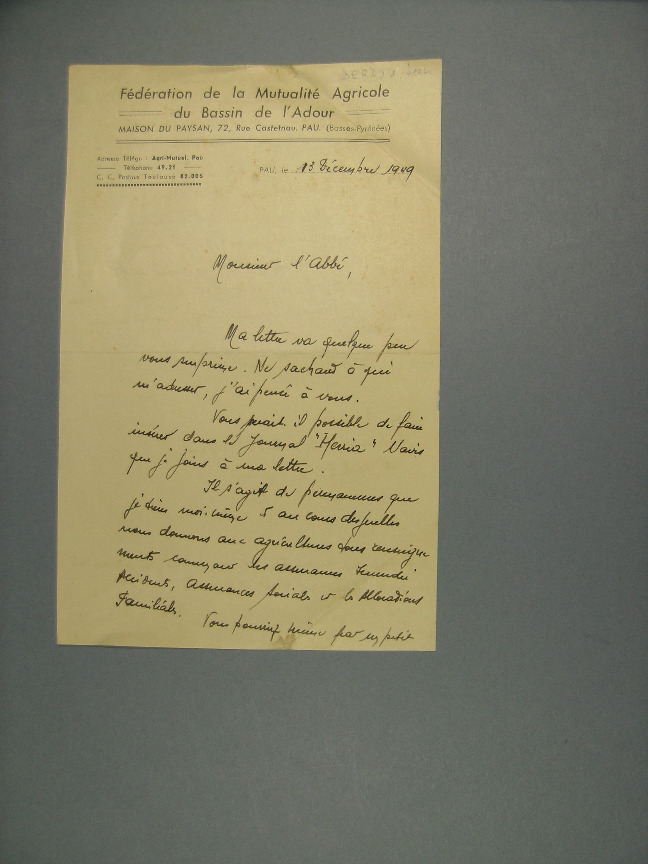 Fédération de la Mutualité Agricole
du Bassin de l'Adour
MAISON DU PAYSAN, 72, Rue Castetnau, PAU. (Basses-Pyrénées)
Adresse Télégr. : Agri-Mutuel. Pau
Téléphone 49.21
C. C. Postaux Toulouse 83.005
PAU, le 13 Décembre 1949
Monsieur l'Abbé,
Ma lettre va quelque peu
vous surprise. Ne sachant à qui
m'adresser, j'ai pensé à vous.
Vous serait-il possible de faire
insérer dans le Journal "Herria" l'avis
que je joins à ma lettre.
Il s'agit de permanences que
je tiens moi-même et au cours desquelles
nous donnons aux agriculteurs tous renseigne
ments concernant les assurances Incendie
Accidents, Assurances Sociales et les Allocations
Familiales.
Vous pourriez même par un petit